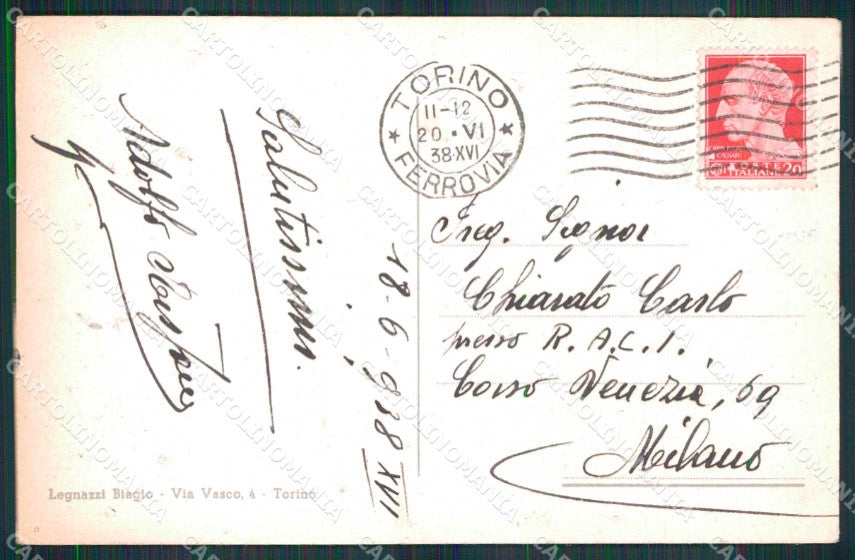 TORINO
11-12
20 • VI
38·XVI
FERROVIA
CAESAR
POSTE ITALIANE
20
Preg. Signor
Chiarato Carlo
presso R. A. C. I.
Corso Venezia, 69
Milano
18-6-938 XVI
Salutissimi.
Adolfo
Legnazzi Biagio - Via Vasco, 4 - Torino
CARTOLINOMANIA